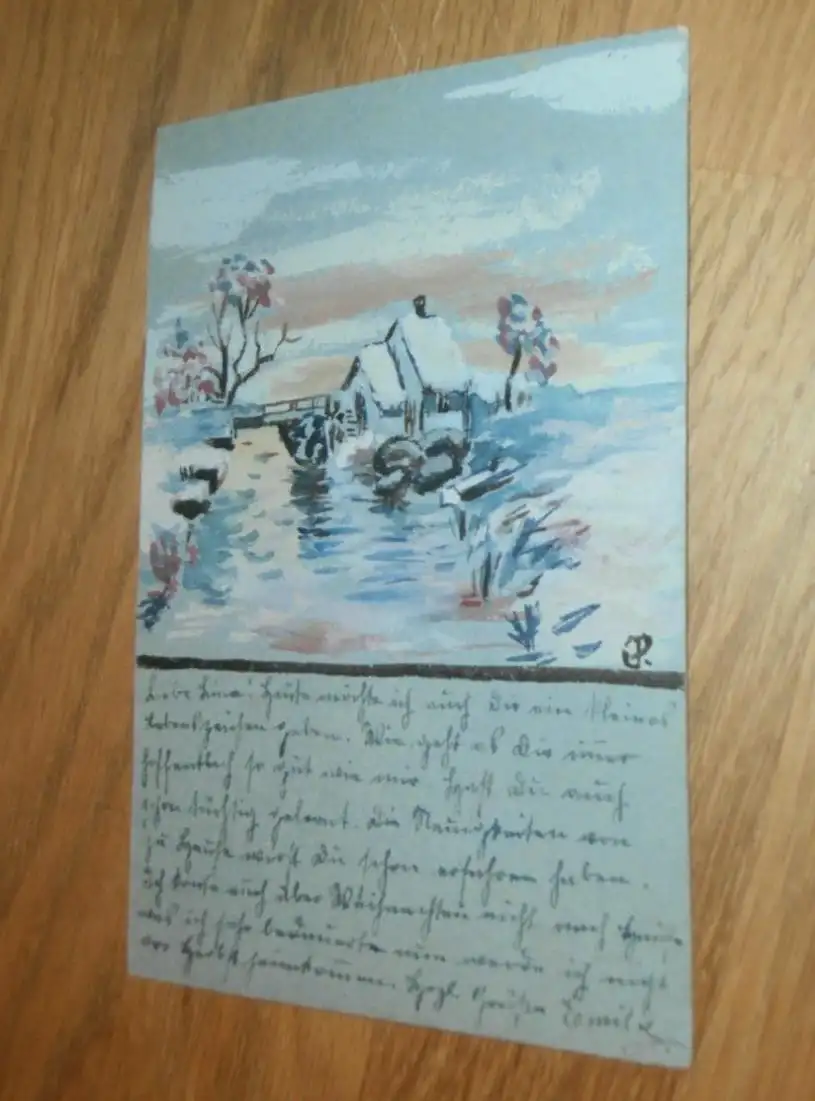 P.
Liebe Lina! Heute möchte ich auch Dir ein kleines
Lebenszeichen geben. Wie geht es Dir immer
hoffentlich so gut wie mir. Hast Du auch
schon tüchtig gelernt. Die Neuigkeiten von
zu Hause wirst Du schon erfahren haben.
Ich konnte auch über Weihnachten nicht nach Hause
was ich sehr bedauerte nun werde ich nicht
vor Herbst heimkommen. Herzl. Grüßen Emil